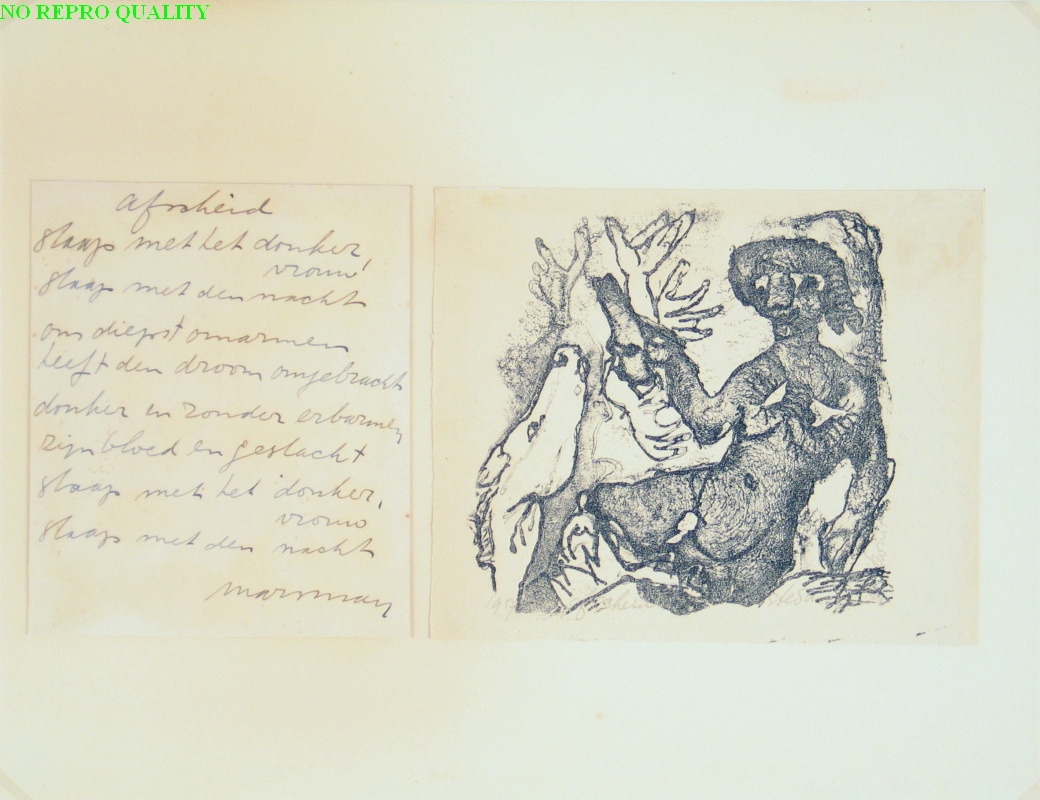 NO REPRO QUALITY
afscheid
slaap met het donker,
vrouw,
slaap met den nacht
ons diepst omarmen
heeft den droom omgebracht
donker en zonder erbarmen
zijn bloed en geslacht
slaap met het donker,
vrouw
slaap met den nacht
marsman